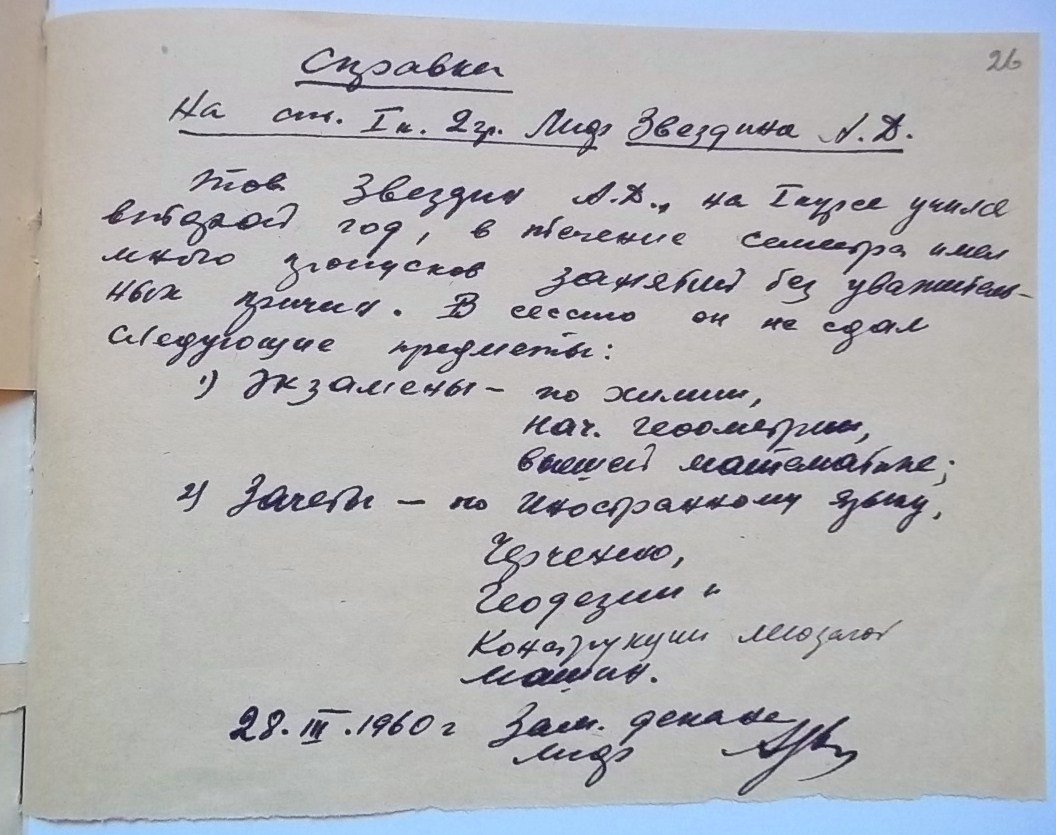 26
Справка
На ст. I к. 2 гр. Лидф Звездина А.Д.
Тов Звездин А.Д., на I курсе учился
второй год, в течение семестра имел
много пропусков занятий без уважитель-
ных причин. В сессию он не сдал
следующие предметы:
1) Экзамены – по химии,
нач. геометрии,
высшей математике;
2) Зачеты – по иностранному языку,
Черчению,
Геодезии и
Конструкции лесозагот
машин.
28.III.1960 г Зам. декана
лидф